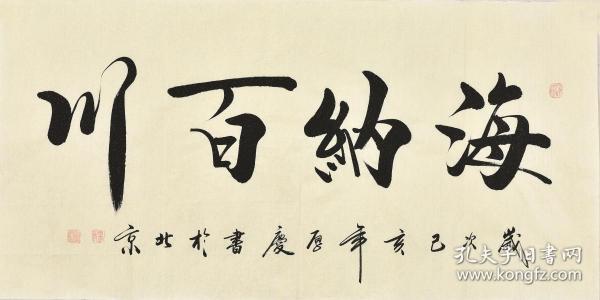 海納百川
歲次己亥年厚慶書於北京
孔夫子旧书网
www.kongfz.com